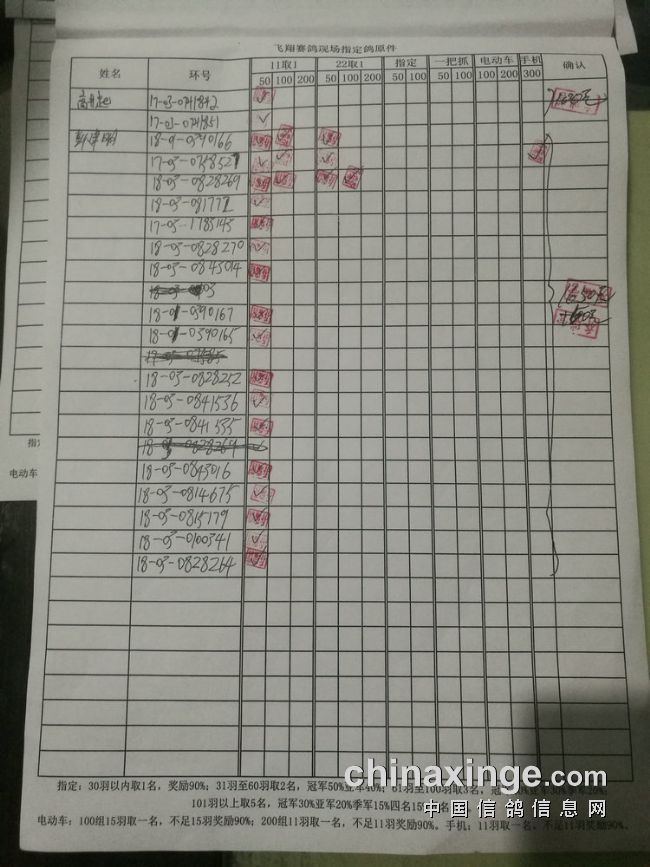 飞翔赛鸽现场指定鸽原件
姓名 环号 11取1 22取1 指定 一把抓 电动车 手机 确认
50 100 200 50 100 200 50 100 50 100 100 200 300
17-03-0741842
17-03-0741851
18-01-0390166
17-03-0758521
18-03-0828269
18-03-081777
17-03-1785143
18-03-0828270
18-03-0845014
18-01-0390167
18-01-0390165
18-03-0828252
18-03-0841536
18-03-0841535
18-03-0828264
18-03-0843016
18-03-0814675
18-03-0815179
18-03-0100341
18-03-0828264
指定
电动车
指定：30羽以内取1名，奖励90%；31羽至60羽取2名，冠军50%亚军40%；61羽至100羽取3名，冠
101羽以上取5名，冠军30%亚军20%季军15%四名15%
电动车：100组15羽取一名，不足15羽奖励90%；200组11羽取一名，不足11羽奖励90%。手机：11羽取一名，不足11羽奖励90%。
chinaxinge.com
中国信鸽信息网